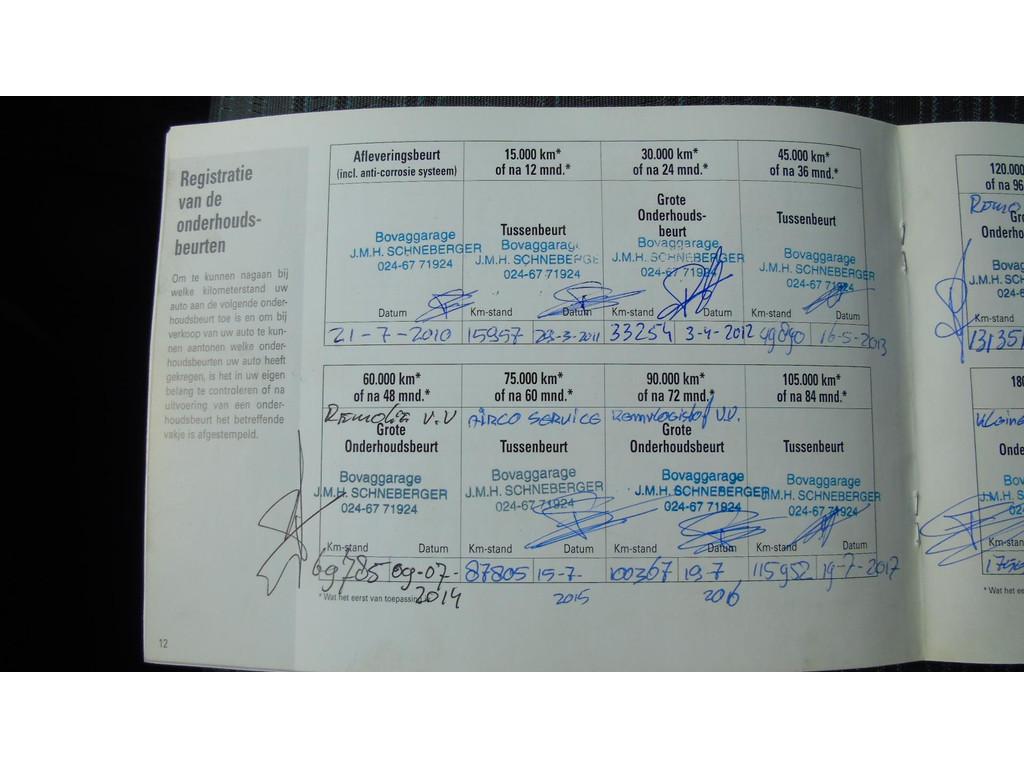 Registratie
van de
onderhouds-
beurten
Om te kunnen nagaan bij
welke kilometerstand uw
auto aan de volgende onder-
houdsbeurt toe is en om bij
verkoop van uw auto te kun-
nen aantonen welke onder-
houdsbeurten uw auto heeft
gekregen, is het in uw eigen
belang te controleren of na
uitvoering van een onder-
houdsbeurt het betreffende
vakje is afgestempeld.
12
Afleveringsbeurt
(incl. anti-corrosie systeem)
Bovaggarage
J.M.H. SCHNEBERGER
024-67 71924
Datum
21-7-2010
15.000 km*
of na 12 mnd.*
Tussenbeurt
Bovaggarage
J.M.H. SCHNEBERGE
024-67 71924
Km-stand Datum
15957 23-3-2011
30.000 km*
of na 24 mnd.*
Grote
Onderhouds-
beurt
Bovaggarage
J.M.H. SCHNEBERGER
024-67 71924
Km-stand Datum
33254 3-4-2012
45.000 km*
of na 36 mnd.*
Tussenbeurt
Bovaggarage
J.M.H. SCHNEBERGER
024-67 71924
Km-stand
49890 16-5-2013
60.000 km*
of na 48 mnd.*
Remolie V.V
Grote
Onderhoudsbeurt
Bovaggarage
J.M.H. SCHNEBERGER
024-67 71924
Km-stand Datum
69785 09-07-
2014
* Wat het eerst van toepassing
75.000 km*
of na 60 mnd.*
AIRCO SERVICE
Tussenbeurt
Bovaggarage
J.M.H. SCHNEBERGER
024-67 71924
Km-stand Datum
87805 15-7-
2015
90.000 km*
of na 72 mnd.*
Remvloeistof V.V.
Grote
Onderhoudsbeurt
Bovaggarage
J.M.H. SCHNEBERGER
024-67 71924
Km-stand Datum
100367 19 7
2016
105.000 km*
of na 84 mnd.*
Tussenbeurt
Bovaggarage
J.M.H. SCHNEBERGER
024-67 71924
Km-stand Datum
115952 19-7-2017
120.000
of na 96
Remo
Gro
Onderho
Bovag
J.M.H. S
024-6
Km-stand
131351
180
Kleine
Onde
Bov
J.M.H. S
024
Km-stand
* Wat het eers